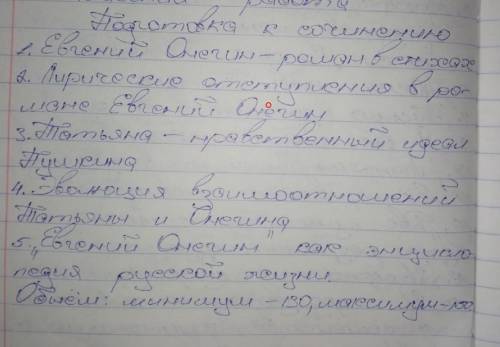 работа
Подготовка к сочинению
1. Евгений Онегин - роман в стихах
2. Лирические отступления в ро-
мане Евгений Онегин
3. Татьяна - нравственный идеал
Пушкина
4. Эволюция взаимоотношений
Татьяны и Онегина
5. "Евгений Онегин" как энцикло
педия русской жизни.
Объём: минимум - 130, максимум -